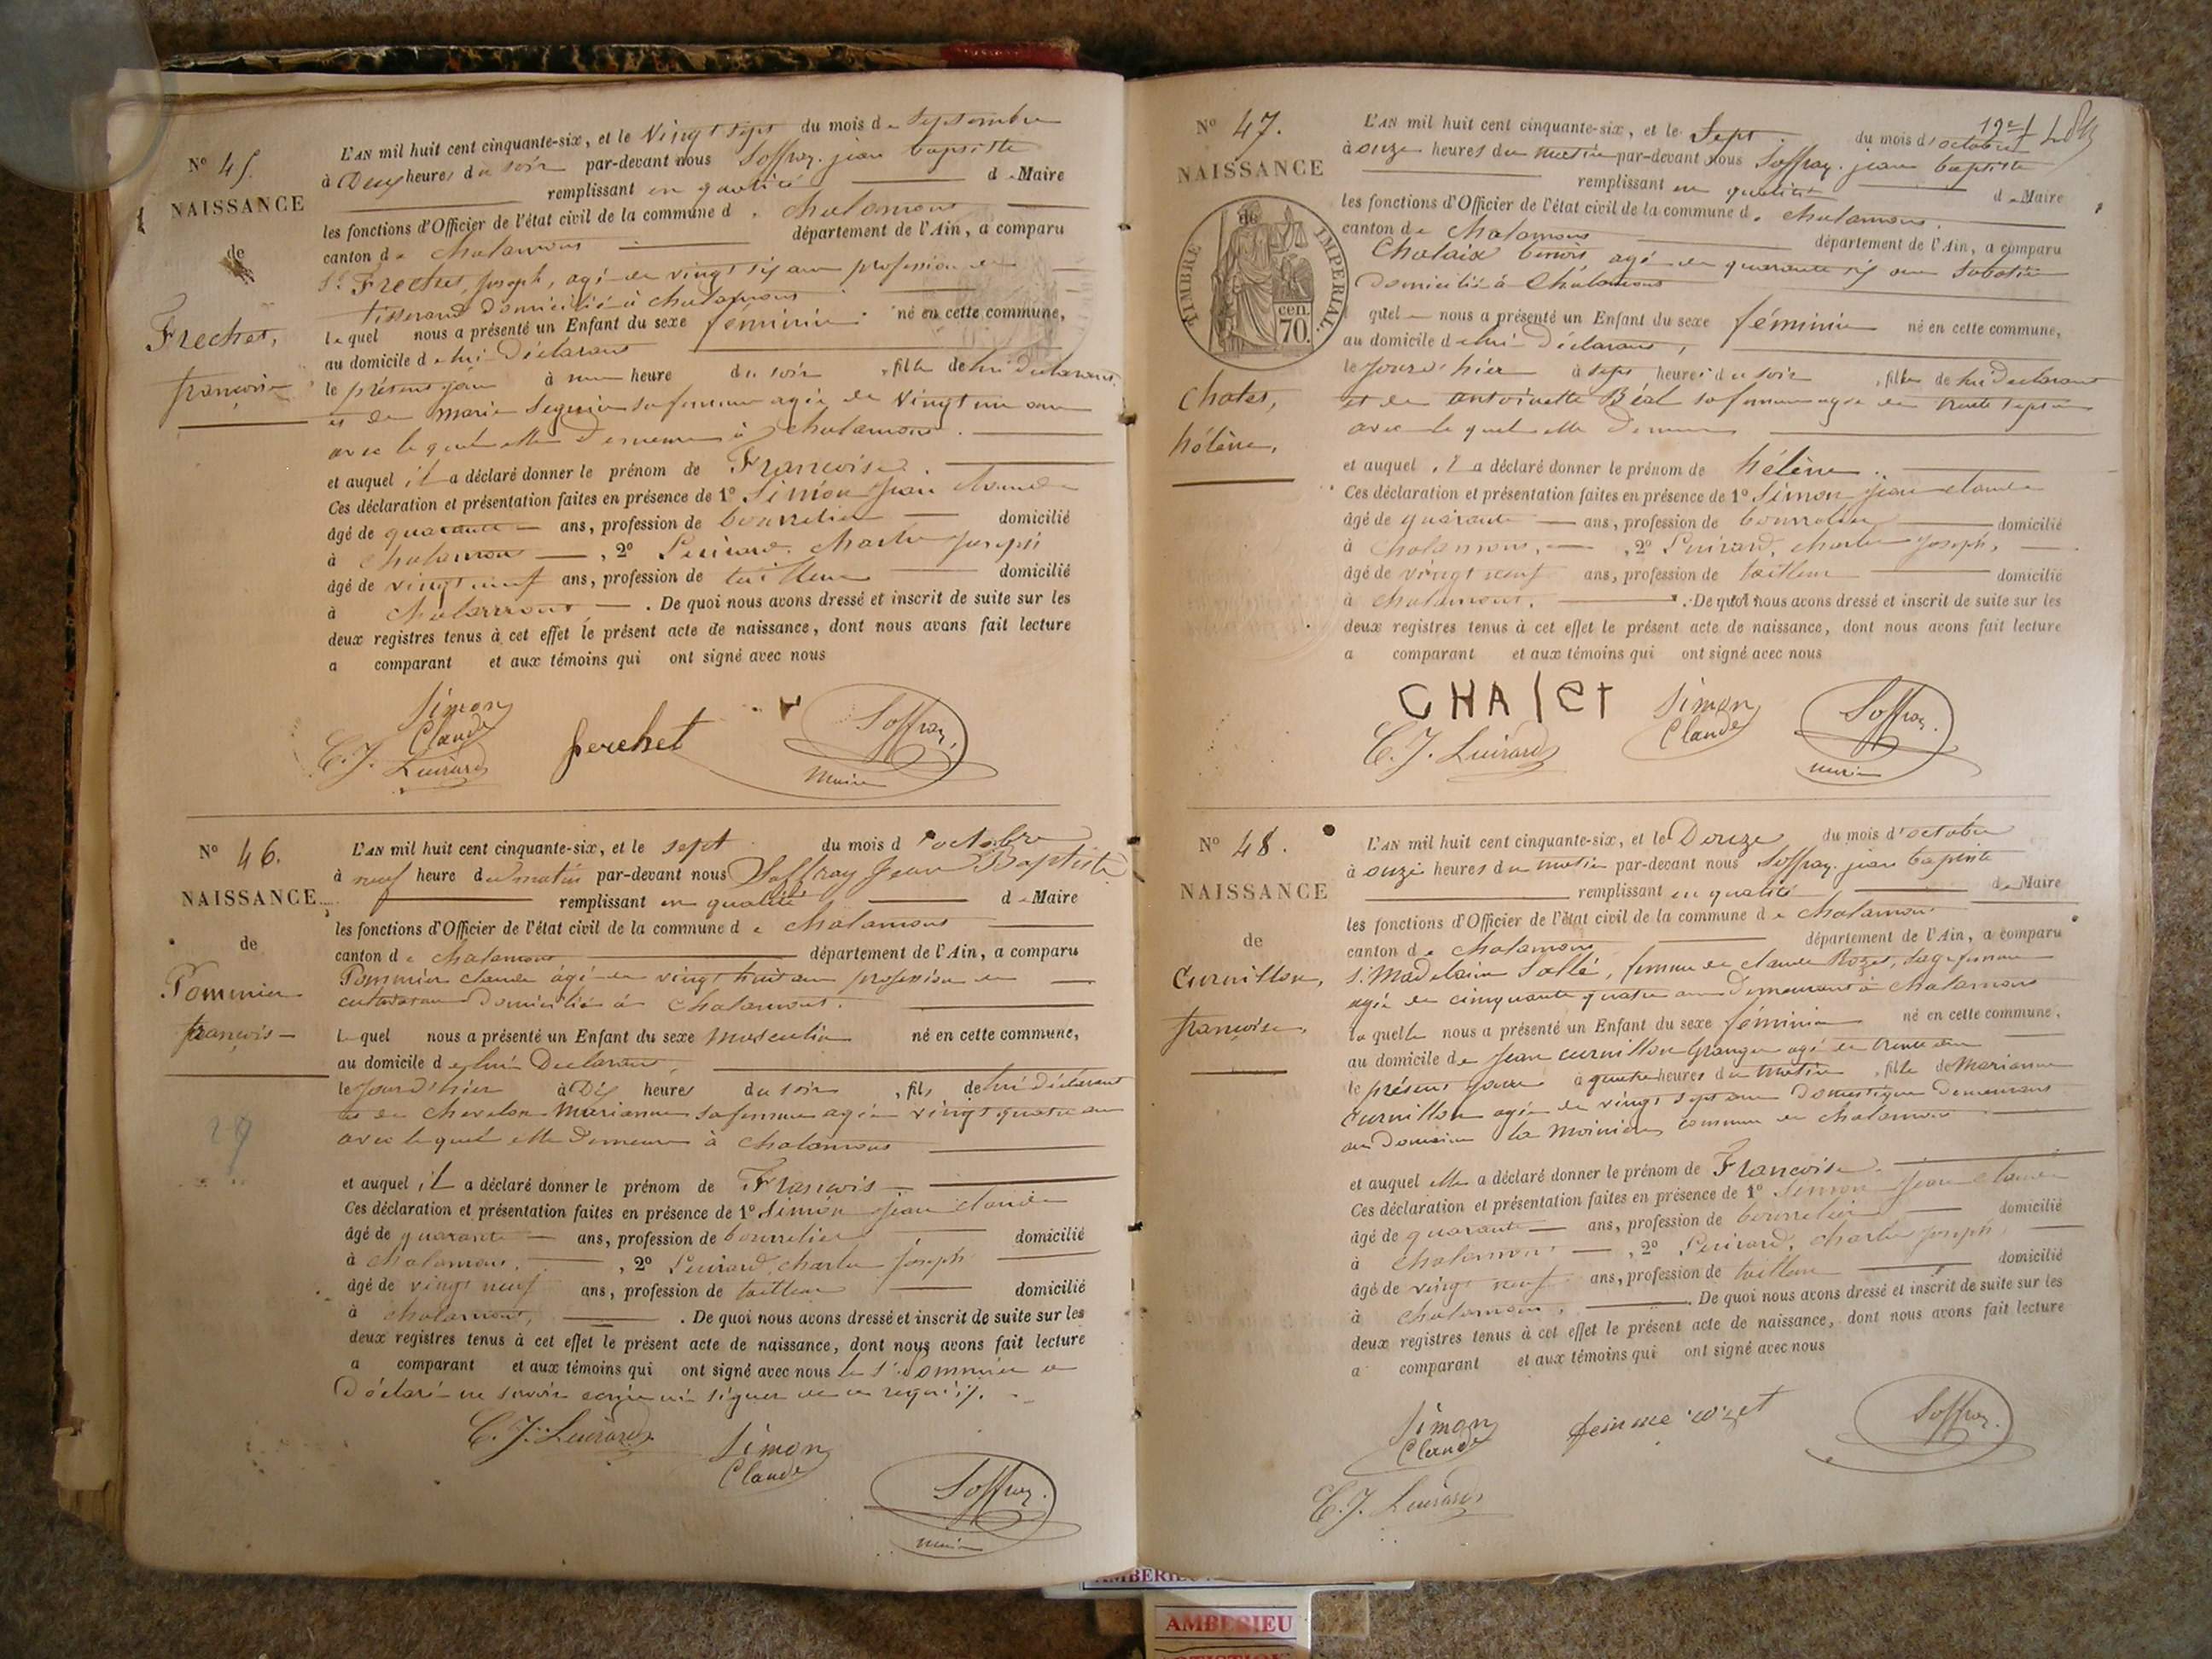 N° 45.
NAISSANCE
de
Frechet,
françoise
L'AN mil huit cent cinquante-six, et le Vingt sept du mois de Septembre
à Deux heures du soir par-devant nous Soffray jean baptiste
remplissant en qualité de Maire
les fonctions d'Officier de l'état civil de la commune de chalamont
canton de chalamont département de l'Ain, a comparu
Sr Frechet, joseph, agé de vingt six ans profession de
tisserand domicilié à chalamont
lequel nous a présenté un Enfant du sexe féminin né en cette commune,
au domicile de lui Déclarant
le présent jour à une heure du soir, fille de lui Déclarant
et de marie Seguin sa femme agée de Vingt un ans
avec lequel elle demeure à chalamont.
et auquel il a déclaré donner le prénom de Françoise.
Ces déclaration et présentation faites en présence de 1° Simon jean claude
âgé de quarante ans, profession de bourrelier domicilié
à chalamont, 2° Luirard, charles joseph
âgé de vingt neuf ans, profession de tailleur domicilié
à chalamont. De quoi nous avons dressé et inscrit de suite sur les
deux registres tenus à cet effet le présent acte de naissance, dont nous avons fait lecture
a comparant et aux témoins qui ont signé avec nous
Simon
Claude
C. J. Luirard
ferchet
Soffray
Maire
N° 46.
NAISSANCE
de
Pommier
françois
29
L'AN mil huit cent cinquante-six, et le sept du mois d'octobre
à neuf heure du matin par-devant nous Soffray Jean Baptiste
remplissant en qualité de Maire
les fonctions d'Officier de l'état civil de la commune de chalamont
canton de chalamont département de l'Ain, a comparu
Pommier claude agé de vingt huit ans profession de
domicilié à chalamont.
lequel nous a présenté un Enfant du sexe masculin né en cette commune,
au domicile de lui Declarant,
le jour d'hier à Dix heures du soir, fils de lui déclarant
et de chevelon Marianne sa femme agée vingt quatre ans
avec lequel elle demeure à chalamont
et auquel il a déclaré donner le prénom de François
Ces déclaration et présentation faites en présence de 1° Simon jean claude
âgé de quarante ans, profession de bourrelier domicilié
à chalamont, 2° Luirard, charles joseph
âgé de vingt neuf ans, profession de tailleur domicilié
à chalamont, . De quoi nous avons dressé et inscrit de suite sur les
deux registres tenus à cet effet le présent acte de naissance, dont nous avons fait lecture
a comparant et aux témoins qui ont signé avec nous le Sr Pommier a
Déclaré ne savoir écrire ni signer de ce requis.
C. J. Luirard
Simon
Claude
Soffray
Maire
N° 47.
NAISSANCE
TIMBRE IMPERIAL.
70 cen.
Chalet,
hélène,
L'AN mil huit cent cinquante-six, et le Sept du mois d'octobre
à onze heures du matin par-devant nous Soffray jean baptiste
remplissant en qualité de Maire
les fonctions d'Officier de l'état civil de la commune de chalamont
canton de chalamont département de l'Ain, a comparu
Chalaix benoit agé de quarante six ans Sabotier
domicilié à Chalamont
quel nous a présenté un Enfant du sexe féminin né en cette commune,
au domicile de lui Déclarant,
le jour d'hier à sept heures du soir, fille de lui Declarant
et de antoinette Béal sa femme agée de trente sept ans
avec lequel elle demeure
et auquel il a déclaré donner le prénom de hélène.
Ces déclaration et présentation faites en présence de 1° Simon jean claude
âgé de quarante ans, profession de bourrelier domicilié
à chalamont, 2° Luirard, charles joseph,
âgé de vingt neuf ans, profession de tailleur domicilié
à chalamont. De quoi nous avons dressé et inscrit de suite sur les
deux registres tenus à cet effet le présent acte de naissance, dont nous avons fait lecture
a comparant et aux témoins qui ont signé avec nous
CHAlet
Simon
Claude
C. J. Luirard
Soffray.
Maire
N° 48.
NAISSANCE
de
Curvillon,
françoise,
L'AN mil huit cent cinquante-six, et le Douze du mois d'octobre
à onze heures du matin par-devant nous Soffray jean baptiste
remplissant en qualité de Maire
les fonctions d'Officier de l'état civil de la commune de chalamont
canton de chalamont département de l'Ain, a comparu
Madelaine Sallé, femme de claude Rozet, Sagefemme
agée de cinquante quatre ans demeurant à chalamont
laquelle nous a présenté un Enfant du sexe féminin né en cette commune,
au domicile de Jean curvillon Granger agé de trente ans
le présent jour à quatre heures du matin, fille de Marianne
Curvillon agée de vingt sept ans Domestique demeurant
au Domaine la Moinière, commune de chalamont
et auquel elle a déclaré donner le prénom de Françoise.
Ces déclaration et présentation faites en présence de 1° Simon jean claude
âgé de quarante ans, profession de bourrelier domicilié
à chalamont, 2° Luirard, charles joseph
âgé de vingt neuf ans, profession de tailleur domicilié
à chalamont, . De quoi nous avons dressé et inscrit de suite sur les
deux registres tenus à cet effet le présent acte de naissance, dont nous avons fait lecture
a comparant et aux témoins qui ont signé avec nous
Simon
Claude
femme rozet
Soffray.
C. J. Luirard
AMBERIEU